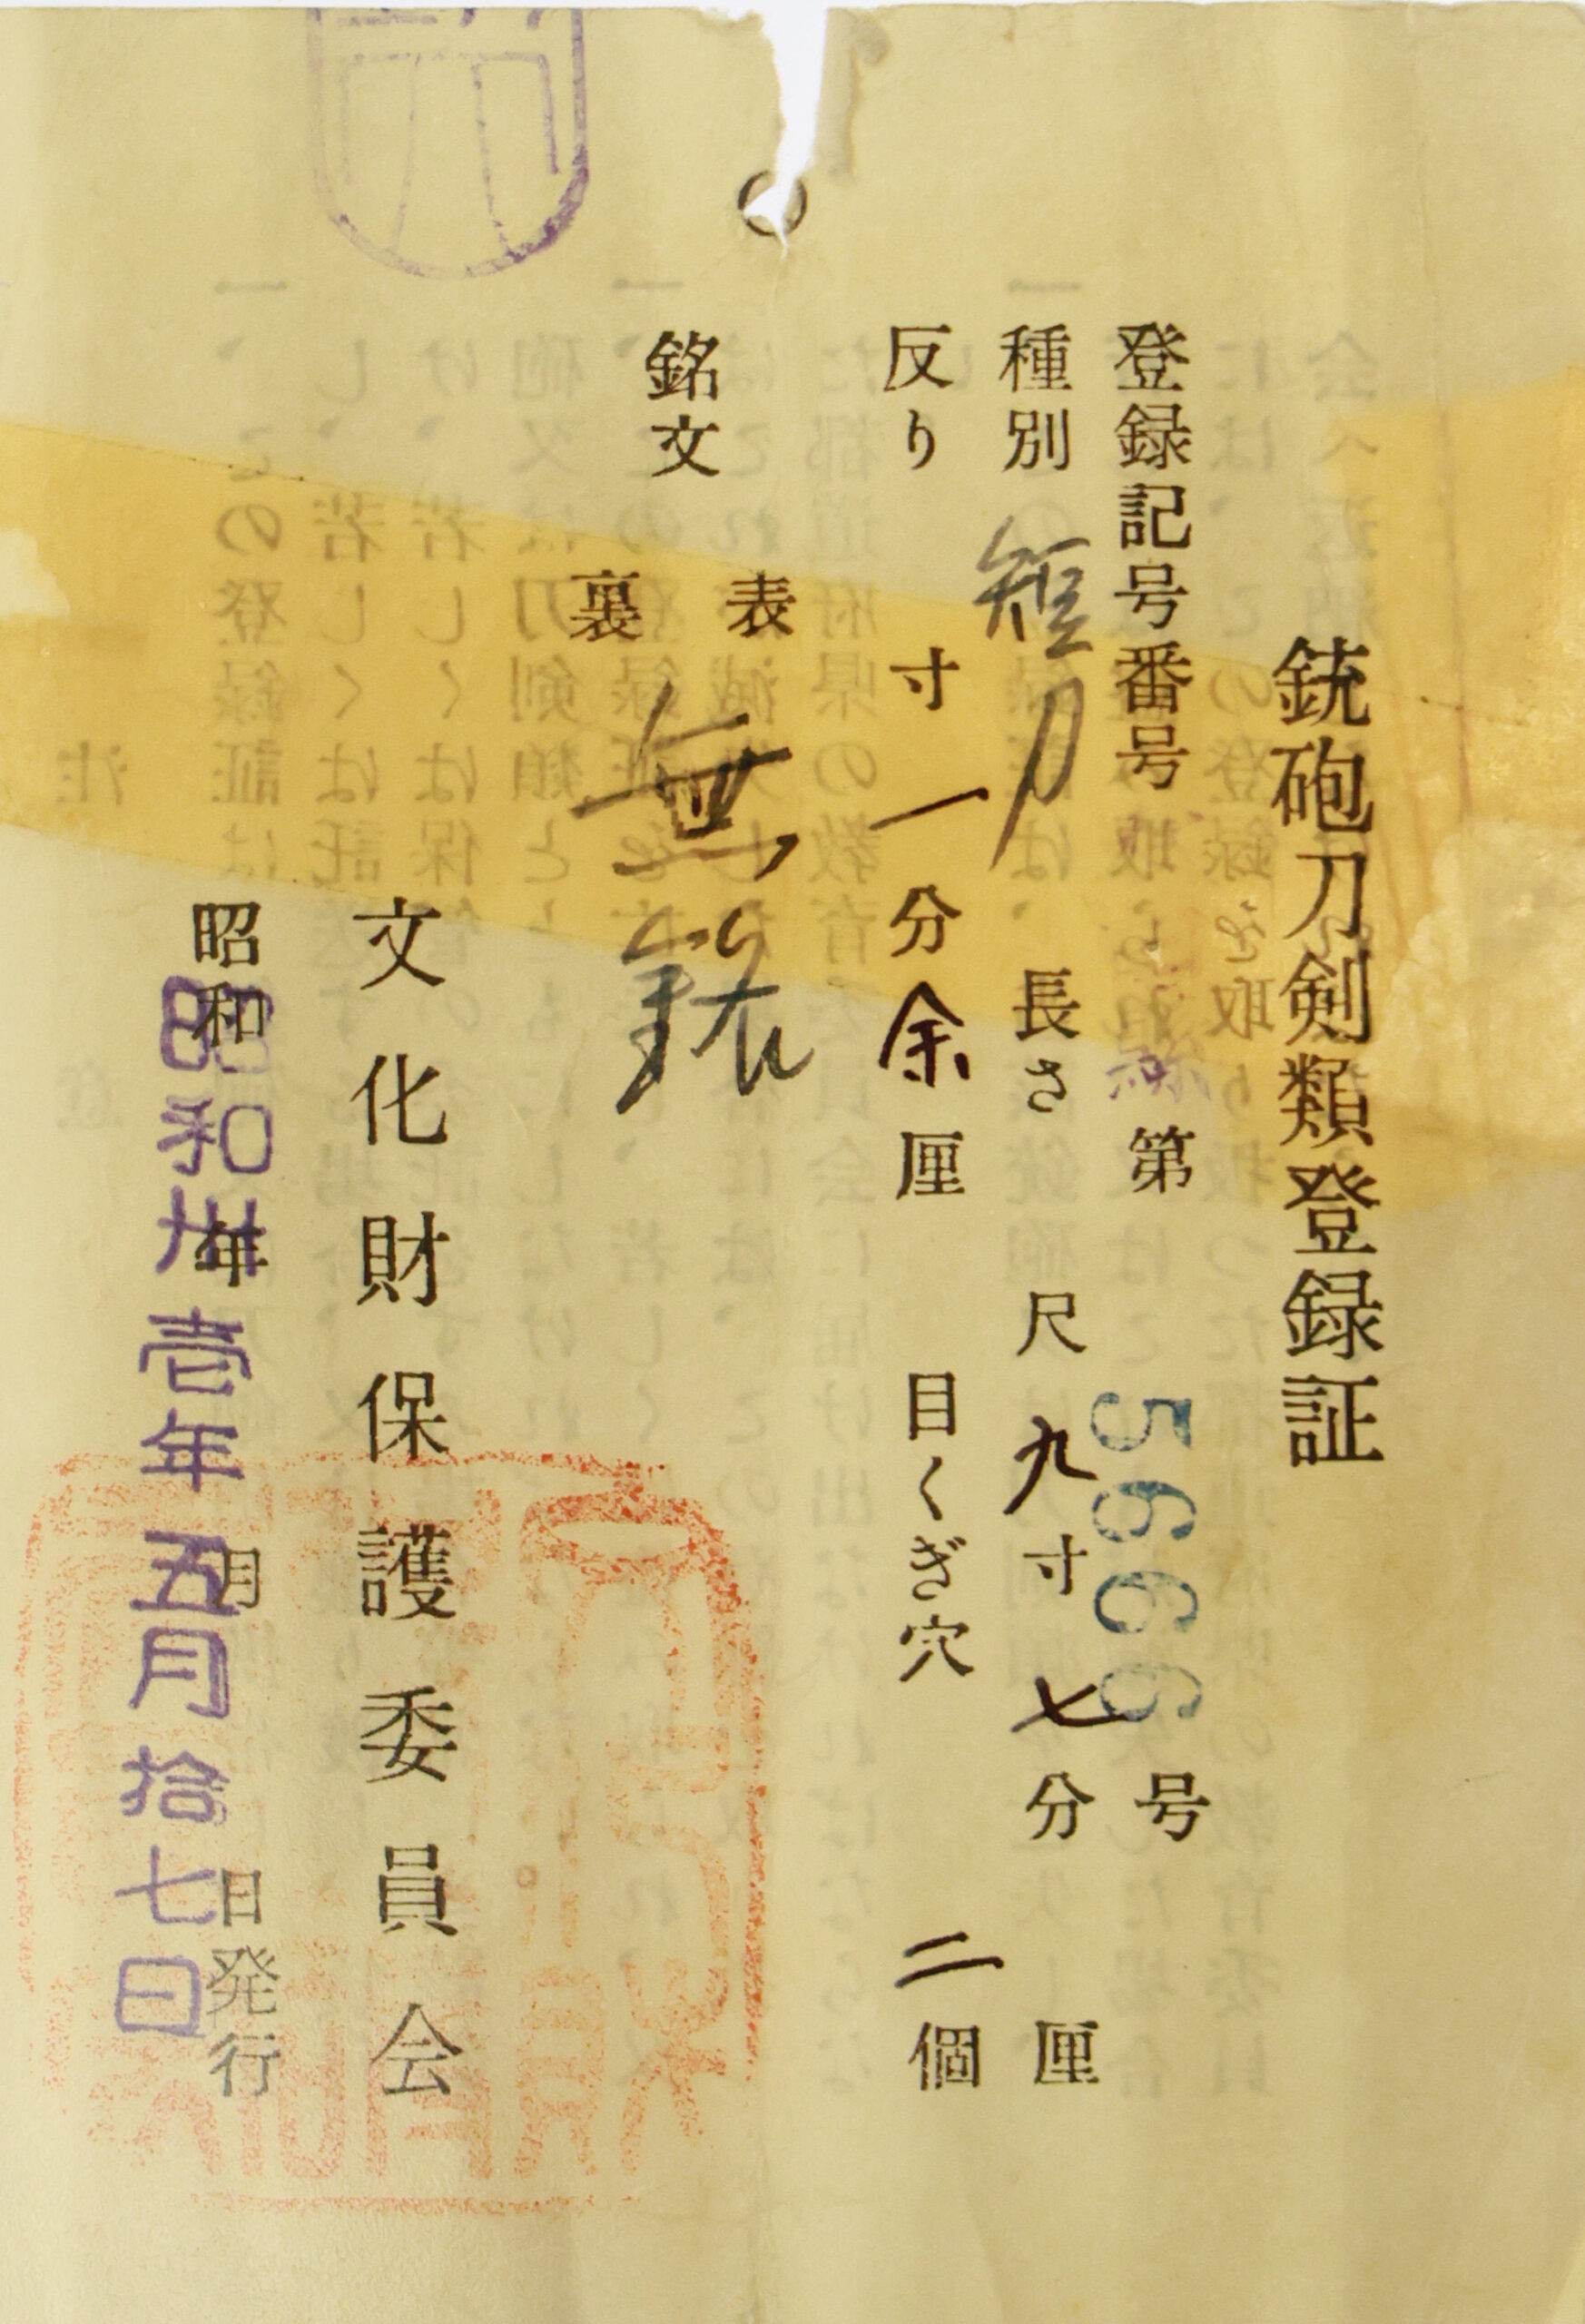 銃砲刀剣類登録証
登録記号番号 第 5666 号
種別 短刀 長さ 尺 九 寸 七 分 厘
反り 寸 一 分 余 厘 目くぎ穴 二 個
銘文
表
裏
無銘
文化財保護委員会
昭和 年 月 日発行
昭和卅壱年五月拾七日